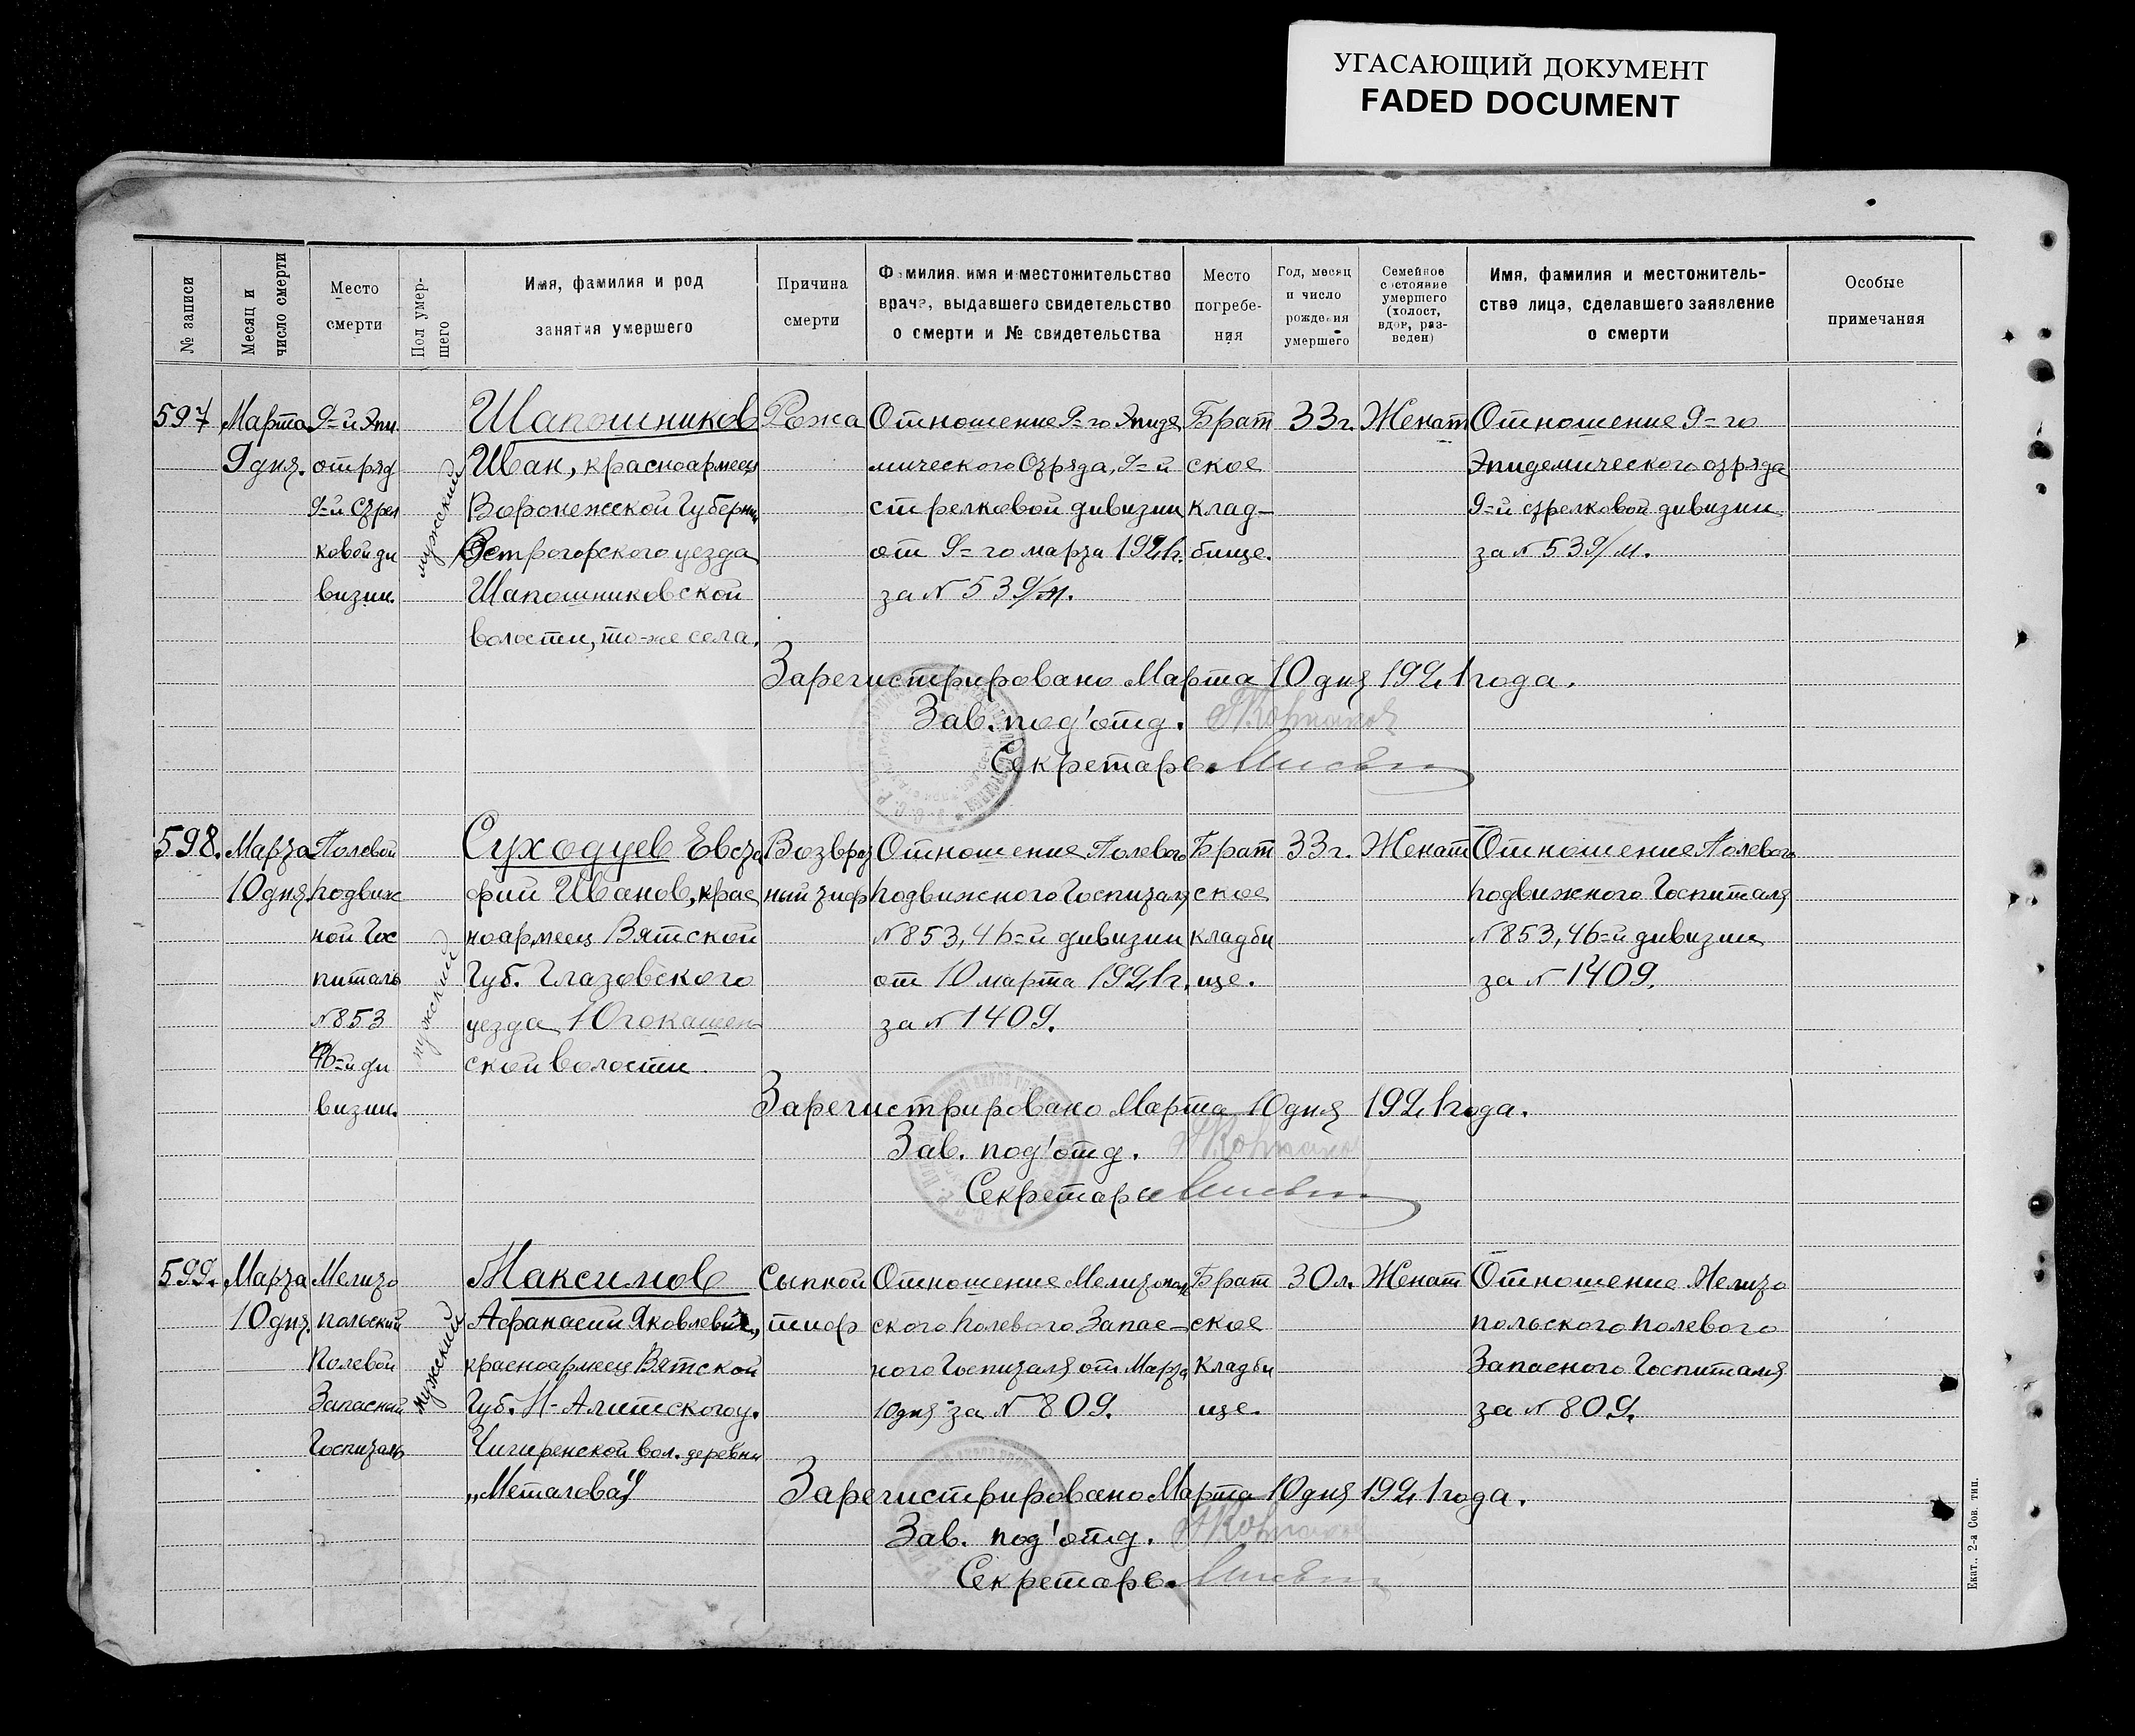 УГАСАЮЩИЙ ДОКУМЕНТ
FADED DOCUMENT
№ записи
Месяц и
число смерти
Место
смерти
Пол умер-
шего
Имя, фамилия и род
занятия умершего
Причина
смерти
Фамилия, имя и местожительство
врача, выдавшего свидетельство
о смерти и № свидетельства
Место
погребе-
ния
Год, месяц
и число
рождения
умершего
Семейное
состояние
умершего
(холост,
вдов, раз-
веден)
Имя, фамилия и местожитель-
ства лица, сделавшего заявление
о смерти
Особые
примечания
597
Марта
9 дня.
9=й Эпи.
отряд
9=й Стрел
ковой ди
визии.
мужский
Шапошников
Иван, красноармеец
Воронежской Губернии
Острогорского уезда
Шапошниковской
волости, то-же села.
Рожа
Отношение 9=го Эпиде
мического Отряда, 9=й
стрелковой дивизии
от 9=го марта 1921г.
за № 539/м.
Брат
ское
клад-
бище.
33г.
Женат
Отношение 9=го
Эпидемического отряда
9=й стрелковой дивизии
за № 539/м.
Зарегистрировано Марта 10 дня 1921 года.
Зав. под'отд.
Секретарь
598.
Марта
10 дня
Полевой
подвиж
ной Гос
питаль
№ 853
46=й ди
визии.
мужский
Суходуев Евста
фий Иванов, крас
ноармеец Вятской
Губ. Глазовского
уезда Югокашен
ской волости
Возврат
ный тиф
Отношение Полевого
подвижного Госпиталя
№ 853, 46=й дивизии
от 10 марта 1921г.
за № 1409.
Брат
ское
кладби
ще.
33г.
Женат
Отношение Полевого
подвижного Госпиталя
№ 853, 46=й дивизии
за № 1409.
Зарегистрировано Марта 10 дня 1921 года.
Зав. под'отд.
Секретарь
599.
Марта
10 дня.
Мелито
польский
Полевой
Запасный
Госпиталь
мужский
Максимов
Афанасий Яковлевич,
красноармеец Вятской
Губ. Н-Алитского у.
Чигиренской вол. деревни
„Металова"
Сыпной
тиф
Отношение Мелитополь
ского Полевого Запас-
ного Госпиталя от Марта
10 дня за № 809.
Брат
ское
кладби
ще.
30л.
Женат
Отношение Мелито
польского полевого
Запасного Госпиталя
за № 809.
Зарегистрировано Марта 10 дня 1921 года.
Зав. под'отд.
Секретарь
Екат., 2-а Сов. тип.